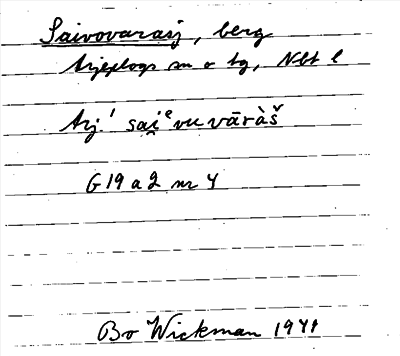 Saivovarasj, berg
Arjeplogs sn o tg, Nbt l
Arj.' sai̯ᵉvuvāràš
G 19 a 2 nr 4
Bo Wickman 1941